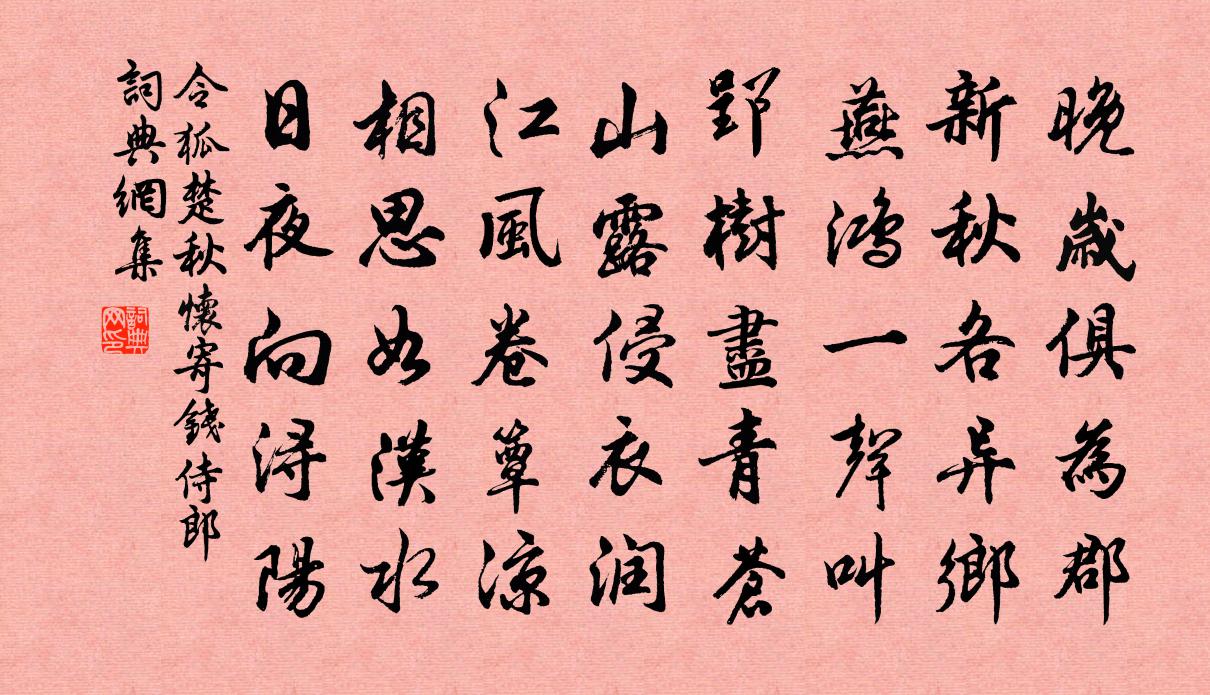 晚歲俱為郡
新秋各异鄉
燕鴻一聲叫
郢樹盡青蒼
山露侵衣润
江風卷簟涼
相思如漢水
日夜向浔陽
令狐楚秋懷寄錢侍郎
詞典網集
詞典网印